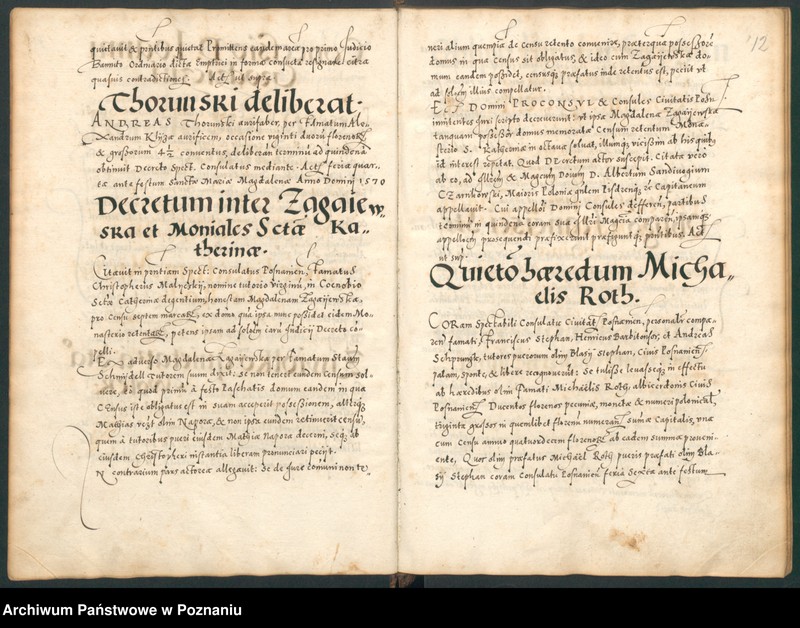 quitavit & p̃ntibus quietat Promittens eandem arcã pro primo Judicio
Bannito Ordinario dictæ Emptrici in forma consueta resignare citra
quasuis contradictiones. Act. ut supra
Thorunski deliberat.
ANDREAS Thorunski aurifaber, per famatum Ale-
xandrum aurificem, occasione viginti duorũ florenorũ
& grossorum 4½ conventus, deliberan terminũ ad quindenã
obtinuit Decreto Spect. Consulatus mediante. Act. feria quar-
ta ante festum Sanctæ Mariæ Magdalenæ Anno Domini 1570
Decretum inter Zagaiew-
ska et Moniales Sctæ Ka-
therinæ.
Citavit in p̃ntiam Spect. Consulatus Posnanien, famatus
Christopherus nomine tutorio Virginũ, in Coenobio
Sctæ Catherinæ degentium, honestam Magdalenam Zagaijewska,
pro Censu septem marcarũ, ex domo qua ipsa nunc possidet eidem Mo-
nasterio retentarũ, petens ipsam ad solõem earũ Judicij Decreto co-
pelli.
Ex adverso Magdalena Zagaijewska per famatum Stanisl
Schmidell Tutorem suum dixit: se non teneri eundem Censum sol-
vere, eo quod primũ à festo Paschatis domum eandem in qua
Census iste obligatus est in suam acceperit possessionem,
Mathias olim Napora, & non ipsa eundem retinuerit censũ,
quem à tutoribus pueri eiusdem Mathiæ Napora decerni, seq̃ ab
eiusdem Christopheri instantia liberam pronunciari petijt.
IN contrarium pars actorea allegavit: se de iure com̃uni non te-
12
neri alium quempiã de Censu retento convenire, præterquã possessorẽ
domus in qua Census sit obligatus, & ideo cum Zagaijewska do-
mum eandem possideat, censusq̃ præfatus inde retentus est, petijt ut
ad solõem illius compellatur.
ET Domini PROCONSUL & Consules Civitatis Posn
inuitentes iuri scripto decreverunt: ut ipsa Magdalena Zagaijewska
tanquam possessor domus memoratæ Censum retentum Monã
sterio S. Katherinæ in octava solvat, illumq̃ vicissim ab his quibus
id interest repetat. Quod Decretum actor suscepit. Citata vero
ab eo, ad Illrem & Magcum Dominũ D. Albertum Sandiuogium
Czarnkowski, Maioris Poloniæ g̃nlem Pisdrenq̃ &c Capitaneum
appellavit. Cui appellõi Domini Consules defferen, partibus
terminũ in quindena coram sua Illri Magcia comparen, ipsamq̃
appellõem prosequendi præfixerunt præfiguntq̃ p̃ntibus. Act
ut sup.
Quieto hæredum Micha-
elis Roth.
CORam Spectabili Consulatu Civitatis Posnanien, personalr compa-
ren famati, Franciscus Stephan, Henricus Barbitonsor, et Andreas
tutores puerorum olim Blasij Stephan, Civis Posnanien,
palam, sponte, & libere recognoverũt: Se tulisse levasseq̃ in effectu
ab hæredibus olim famati Michaelis Roth, albicerdonis Civis
Posnanien. Ducentos florenos pecuniæ, monetæ & numeri polonical,
triginta grossos in quemlibet florenũ numeran, sum̃æ Capitalis, una
cum Censu annuo quatuordecem florenorũ ab eadem summa proveni-
ente, Quos olim præfatus Michael Roth pueris præfati olim Bla-
sij Stephan coram Consulatu Posnanien feria Sexta ante festum
Archiwum Państwowe w Poznaniu